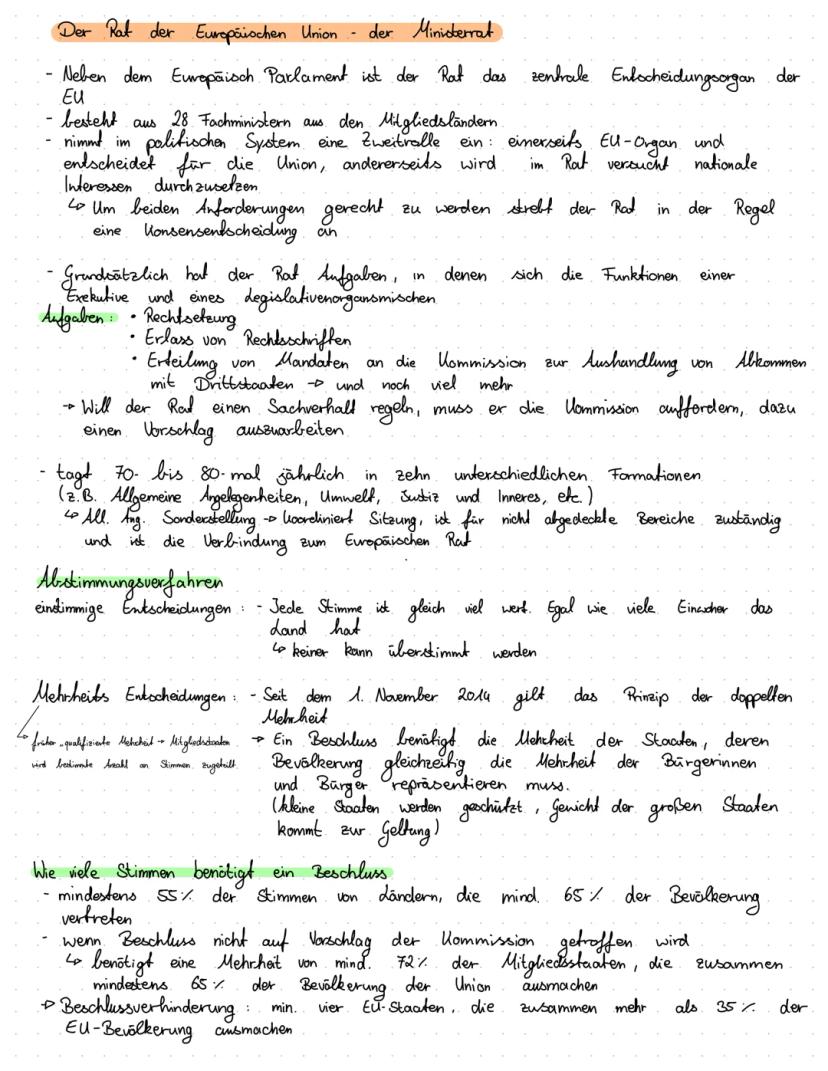 Der Rat der Europäischen Union - der Ministerrat
- Neben dem Europäisch Parlament ist der Rat das zentrale Entscheidungsorgan der
EU
- besteht aus 28 Fachministern aus den Mitgliedsländern
- nimmt im politischen System eine Zweitrolle ein: einerseits EU-Organ und
entscheidet für die Union, andererseits wird im Rat versucht nationale
Interessen durchzusetzen
↳ Um beiden Anforderungen gerecht zu werden strebt der Rat in der Regel
eine Konsensentscheidung an
- Grundsätzlich hat der Rat Aufgaben, in denen sich die Funktionen einer
Exekutive und eines Legislativenorgansmischen
Aufgaben: • Rechtsetzung
• Erlass von Rechtsschriften
• Erteilung von Mandaten an die Kommission zur Aushandlung von Abkommen
mit Drittstaaten → und noch viel mehr
→ Will der Rat einen Sachverhalt regeln, muss er die Kommission auffordern, dazu
einen Vorschlag auszuarbeiten
- tagt 70- bis 80-mal jährlich in zehn unterschiedlichen Formationen
(z.B. Allgemeine Angelegenheiten, Umwelt, Justiz und Inneres, etc.)
↳ All. Ang. Sonderstellung → koordiniert Sitzung, ist für nicht abgedeckte Bereiche zuständig
und ist die Verbindung zum Europäischen Rat
Abstimmungsverfahren
einstimmige Entscheidungen: - Jede Stimme ist gleich viel wert. Egal wie viele Einwohner das
Land hat
↳ keiner kann überstimmt werden
Mehrheits Entscheidungen: - Seit dem 1. November 2014 gilt das Prinzip der doppelten
Mehrheit
↳ früher "qualifizierte Mehrheit → Mitgliedsstaaten
wird bestimmte Anzahl an Stimmen zugeteilt
→ Ein Beschluss benötigt die Mehrheit der Staaten, deren
Bevölkerung gleichzeitig die Mehrheit der Bürgerinnen
und Bürger repräsentieren muss.
(kleine Staaten werden geschützt, Gewicht der großen Staaten
kommt zur Geltung)
Wie viele Stimmen benötigt ein Beschluss
- mindestens 55% der Stimmen von Ländern, die mind. 65% der Bevölkerung
vertreten
- wenn Beschluss nicht auf Vorschlag der Kommission getroffen wird
↳ benötigt eine Mehrheit von mind. 72% der Mitgliedsstaaten, die zusammen
mindestens 65% der Bevölkerung der Union ausmachen
→ Beschlussverhinderung: min. vier EU-Staaten, die zusammen mehr als 35% der
EU-Bevölkerung ausmachen